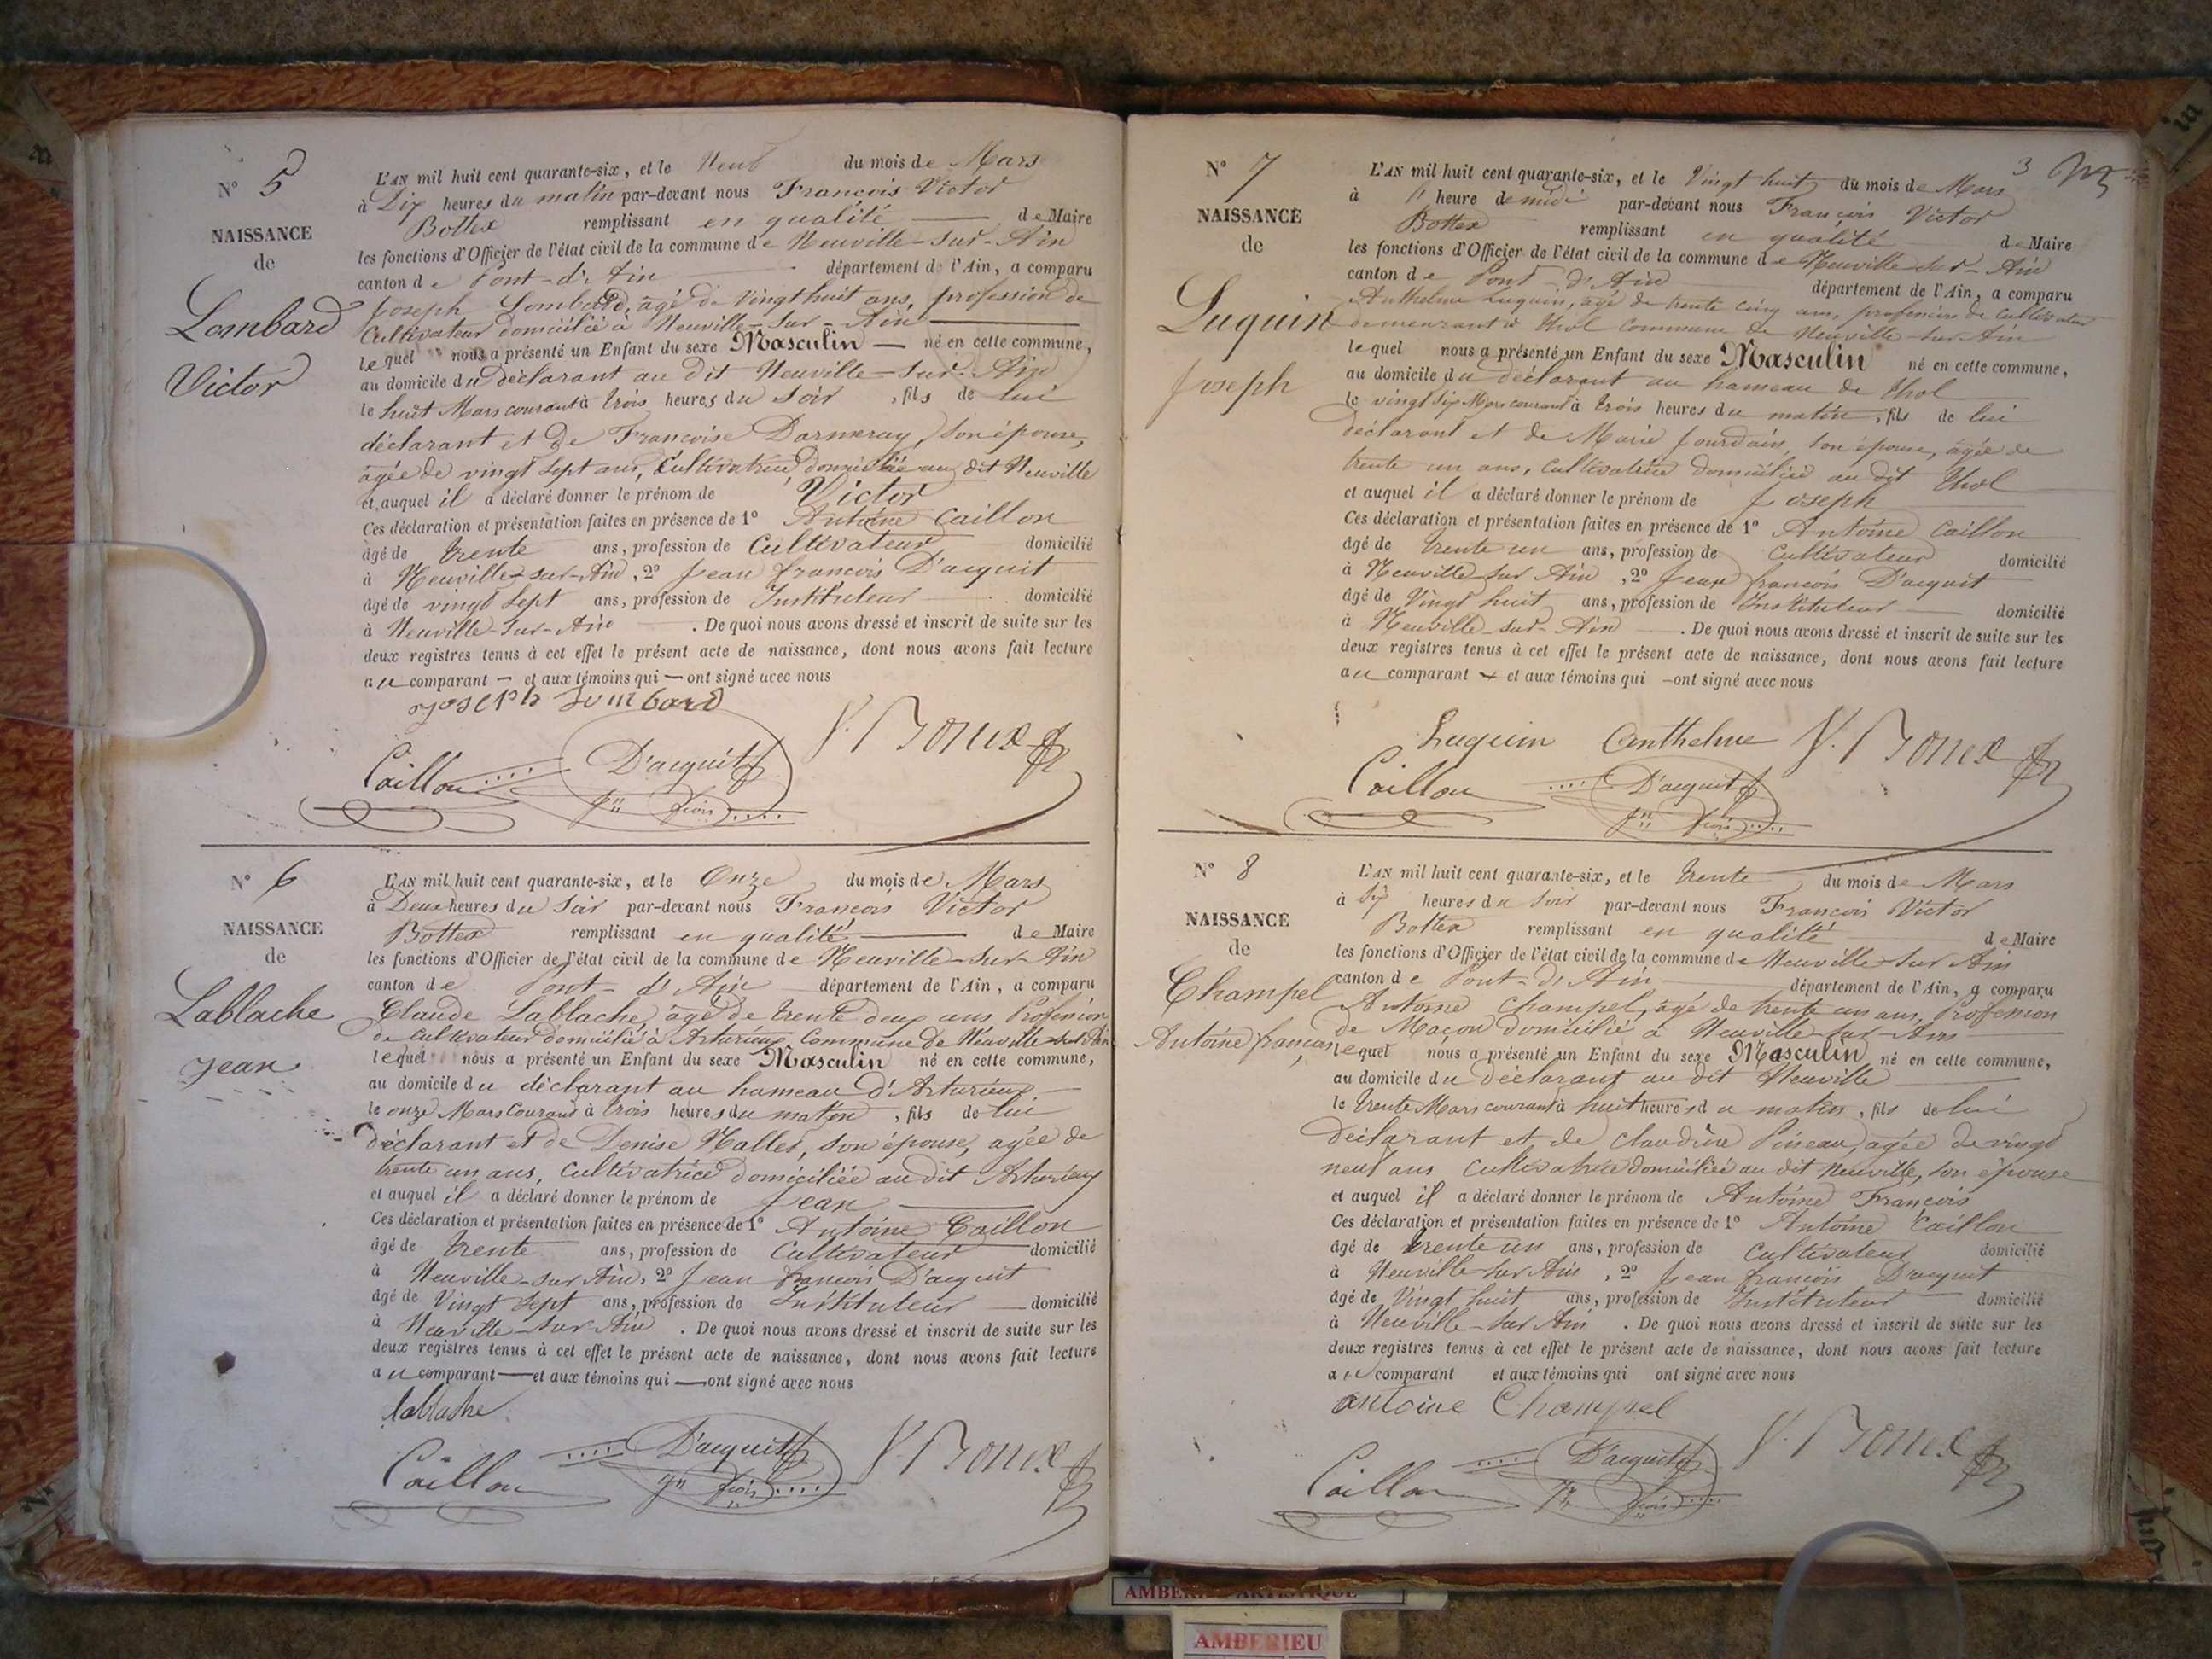 N° 5
NAISSANCE
de
Lombard
Victor
L'AN mil huit cent quarante-six, et le Neuf du mois de Mars
à Dix heures du matin par-devant nous François Victor
Bottex remplissant en qualité de Maire
les fonctions d'Officier de l'état civil de la commune de Neuville-sur-Ain
canton de Pont-d'Ain département de l'Ain, a comparu
Joseph Lombard, âgé de vingt huit ans, profession de
Cultivateur domicilié à Neuville-sur-Ain
lequel nous a présenté un Enfant du sexe Masculin né en cette commune,
au domicile du déclarant au dit Neuville-sur-Ain
le huit Mars courant à trois heures du soir, fils de lui
déclarant et de Françoise Darmeray, son épouse,
âgée de vingt sept ans, Cultivatrice, domiciliée au dit Neuville
et auquel il a déclaré donner le prénom de Victor
Ces déclaration et présentation faites en présence de 1° Antoine Caillon
âgé de trente ans, profession de Cultivateur domicilié
à Neuville-sur-Ain, 2° Jean françois D'acquit
âgé de vingt sept ans, profession de Instituteur domicilié
à Neuville-sur-Ain. De quoi nous avons dressé et inscrit de suite sur les
deux registres tenus à cet effet le présent acte de naissance, dont nous avons fait lecture
au comparant — et aux témoins qui — ont signé avec nous
joseph Lombard
V. Bottex
Caillon D'acquit
jn fçois
N° 6
NAISSANCE
de
Lablache
Jean
L'AN mil huit cent quarante-six, et le Onze du mois de Mars
à Deux heures du Soir par-devant nous François Victor
Bottex remplissant en qualité de Maire
les fonctions d'Officier de l'état civil de la commune de Neuville-sur-Ain
canton de Pont-d'Ain département de l'Ain, a comparu
Claude Lablache âgé de trente deux ans Profession
de cultivateur domicilié à Arturieux Commune de Neuville-sur-Ain
lequel nous a présenté un Enfant du sexe Masculin né en cette commune,
au domicile du déclarant au hameau d'Arturieux
le onze Mars Courant à trois heures du matin, fils de lui
déclarant et de Denise Mallet, son épouse, agée de
trente un ans, Cultivatrice domiciliée au dit Arturieux
et auquel il a déclaré donner le prénom de Jean
Ces déclaration et présentation faites en présence de 1° Antoine Caillon
âgé de trente ans, profession de Cultivateur domicilié
à Neuville-sur Ain, 2° Jean françois D'acquit
âgé de Vingt Sept ans, profession de Instituteur domicilié
à Neuville-sur Ain. De quoi nous avons dressé et inscrit de suite sur les
deux registres tenus à cet effet le présent acte de naissance, dont nous avons fait lecture
au comparant — et aux témoins qui — ont signé avec nous
lablache
Caillon D'acquit V. Bottex
jn fçois
3
N° 7
NAISSANCE
de
Luquin
Joseph
L'AN mil huit cent quarante-six, et le Vingt huit du mois de Mars
à 1 heure de midi par-devant nous François Victor
Bottex remplissant en qualité de Maire
les fonctions d'Officier de l'état civil de la commune de Neuville-sur-Ain
canton de Pont-d'Ain département de l'Ain, a comparu
Anthelme Luquin, âgé de trente cinq ans, profession de Cultivateur
demeurant à Thol commune de Neuville-sur-Ain
lequel nous a présenté un Enfant du sexe Masculin né en cette commune,
au domicile du déclarant au hameau de Thol
le vingt six Mars courant à trois heures du matin, fils de lui
déclarant et de Marie Jourdain, son épouse, agée de
trente un ans, Cultivatrice domiciliée au dit Thol
et auquel il a déclaré donner le prénom de Joseph
Ces déclaration et présentation faites en présence de 1° Antoine Caillon
âgé de trente un ans, profession de Cultivateur domicilié
à Neuville sur Ain, 2° Jean françois D'acquit
âgé de Vingt huit ans, profession de Instituteur domicilié
à Neuville-sur-Ain. De quoi nous avons dressé et inscrit de suite sur les
deux registres tenus à cet effet le présent acte de naissance, dont nous avons fait lecture
au comparant et aux témoins qui — ont signé avec nous
Luquin Anthelme V. Bottex
Caillon D'acquit
jn fçois
N° 8
NAISSANCE
de
Champel
Antoine françois
L'AN mil huit cent quarante-six, et le trente du mois de Mars
à Six heures du Soir par-devant nous François Victor
Bottex remplissant en qualité de Maire
les fonctions d'Officier de l'état civil de la commune de Neuville-sur Ain
canton de Pont-d'Ain département de l'Ain, a comparu
Antoine Champel, âgé de trente un ans, Profession
de Maçon domicilié à Neuville-sur-Ain
lequel nous a présenté un Enfant du sexe Masculin né en cette commune,
au domicile du déclarant au dit Neuville
le trente Mars courant à huit heures du matin, fils de lui
déclarant et de Claudine Pineau, agée de vingt
neuf ans Cultivatrice domiciliée au dit Neuville, son épouse
et auquel il a déclaré donner le prénom de Antoine François
Ces déclaration et présentation faites en présence de 1° Antoine Caillon
âgé de trente un ans, profession de Cultivateur domicilié
à Neuville-sur Ain, 2° Jean françois D'acquit
âgé de Vingt huit ans, profession de Instituteur domicilié
à Neuville-sur Ain. De quoi nous avons dressé et inscrit de suite sur les
deux registres tenus à cet effet le présent acte de naissance, dont nous avons fait lecture
au comparant et aux témoins qui ont signé avec nous
antoine Champel
Caillon D'acquit V. Bottex
jn fçois
AMBERIEU